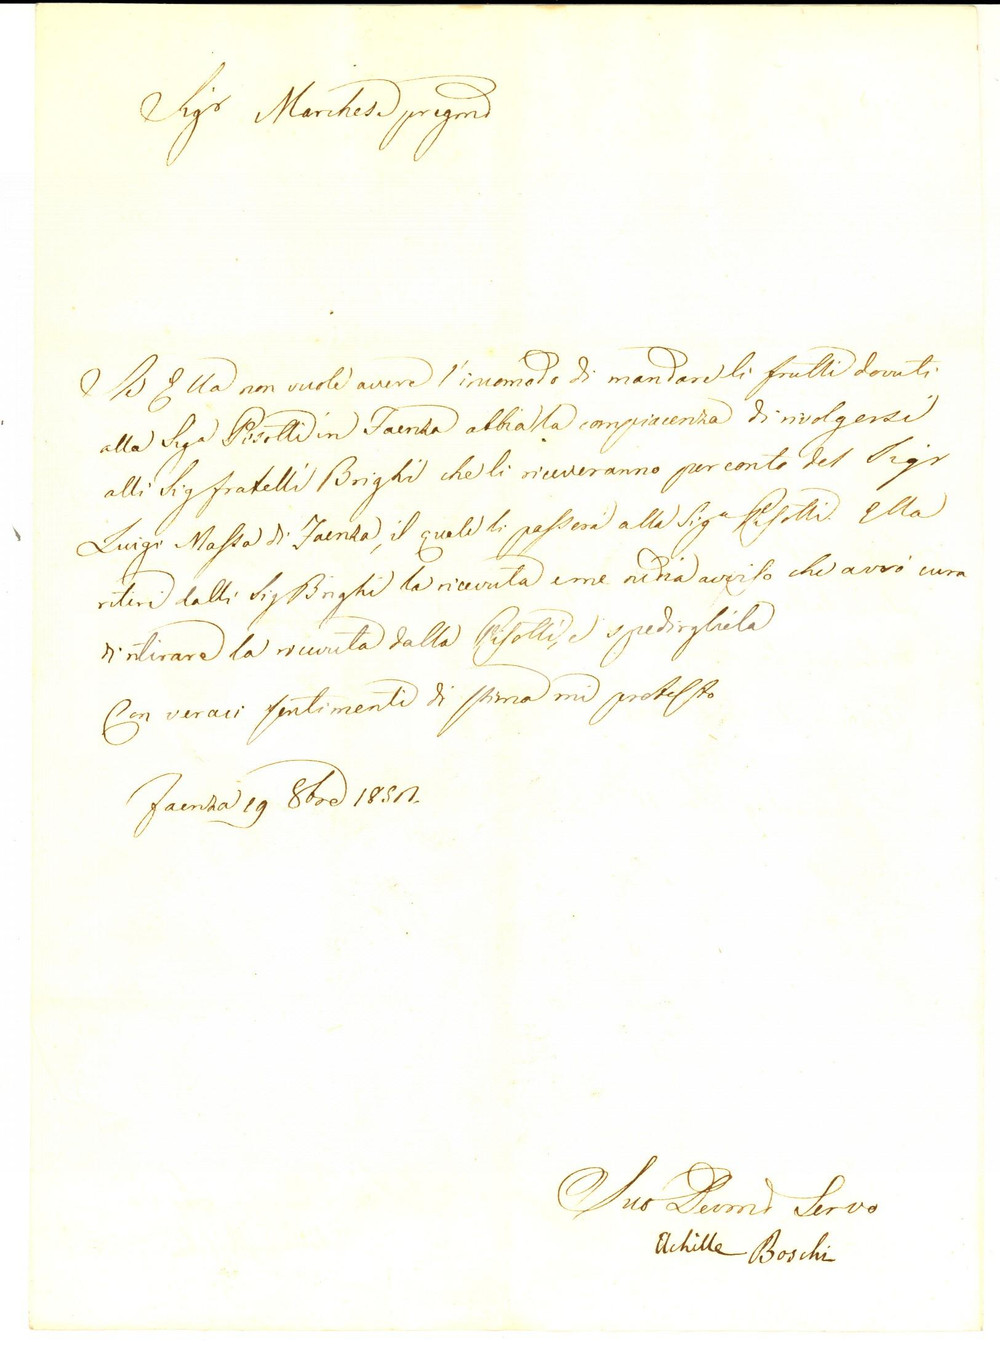 Sigr Marchese pregmo
Se Ella non vuole avere l'incomodo di mandare li frutti dovuti
alla Siga Pisotti in Faenza abbia la compiacenza di rivolgersi
alli Sig fratelli Brighi che li riceveranno per conto del Sigr
Luigi Massa di Faenza, il quale li passerà alla Siga Pisotti. Ella
ritiri dalli Sig Brighi la ricevuta e me ne dia avviso che avrò cura
di ritirare la ricevuta dalla Pisotti, e spedirgliela
Con veraci sentimenti di stima mi protesto
Faenza 19 8bre
Suo Devmo Servo
Achille Boschi